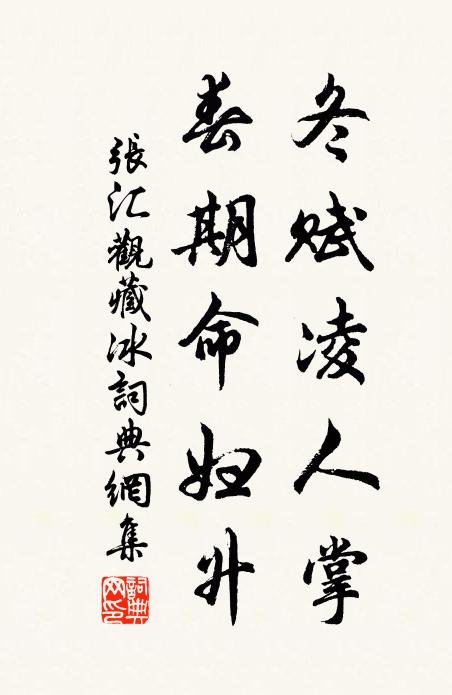 冬赋凌人掌
春期命妇升
張汇觀藏冰詞典網集
詞典网印